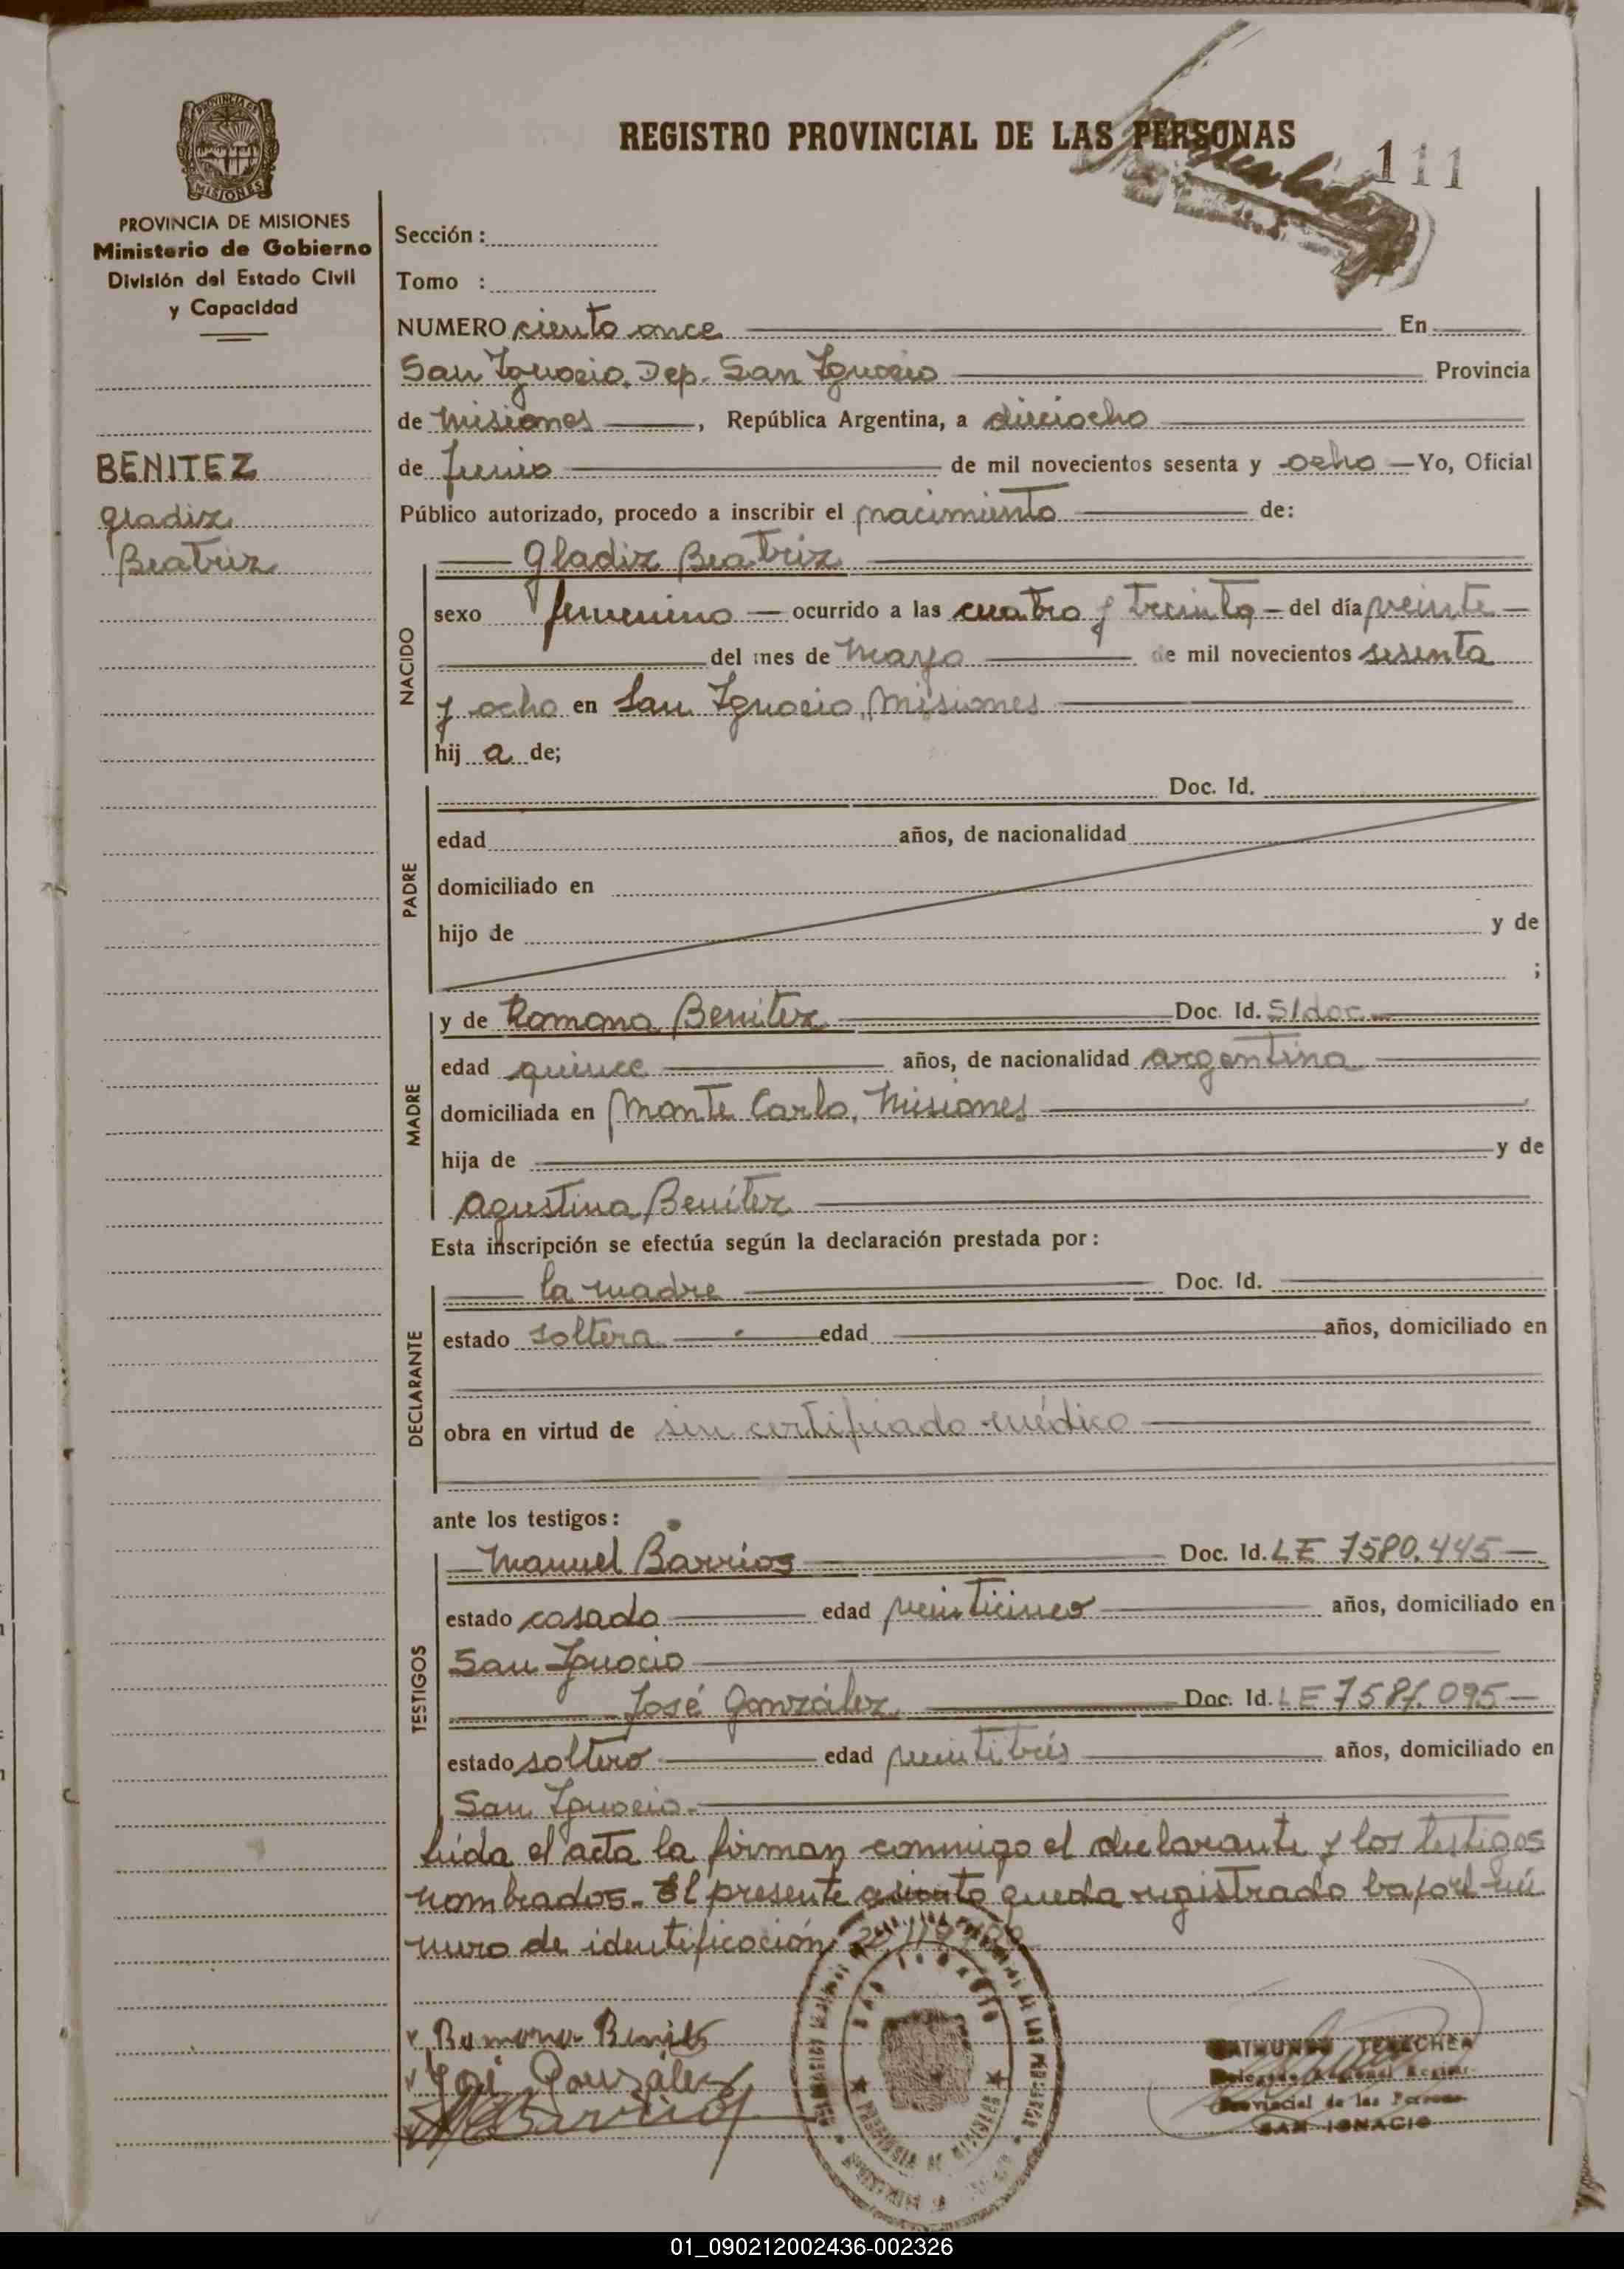 REGISTRO PROVINCIAL DE LAS PERSONAS
111
PROVINCIA DE MISIONES
PROVINCIA DE MISIONES
Ministerio de Gobierno
División del Estado Civil
y Capacidad
BENITEZ
Gladiz
Beatriz
Sección :
Tomo :
NUMERO ciento once En
San Ignacio, Dep. San Ignacio Provincia
de Misiones, República Argentina, a dieciocho
de Junio de mil novecientos sesenta y ocho Yo, Oficial
Público autorizado, procedo a inscribir el nacimiento de:
Gladiz Beatriz
NACIDO
sexo femenino ocurrido a las cuatro y treinta del día veinte
del mes de Mayo de mil novecientos sesenta
y ocho en San Ignacio, Misiones
hij a de;
PADRE
Doc. Id.
edad años, de nacionalidad
domiciliado en
hijo de y de
;
MADRE
y de Ramona Benitez Doc. Id. S/doc.
edad quince años, de nacionalidad argentina
domiciliada en Monte Carlo, Misiones
hija de y de
Agustina Benítez
Esta inscripción se efectúa según la declaración prestada por :
DECLARANTE
la madre Doc. Id.
estado soltera edad años, domiciliado en
obra en virtud de sin certificado médico
ante los testigos :
TESTIGOS
Manuel Barrios Doc. Id. LE 7580.445
estado casado edad veinticinco años, domiciliado en
San Ignacio
José González Doc. Id. LE 7581.095
estado soltero edad veintitrés años, domiciliado en
San Ignacio.
Leída el acta la firman conmigo el declarante y los testigos
nombrados. El presente asiento queda registrado bajo el nú
mero de identificación
Ramona Benitez
José González
MBarrios
RAIMUNDO
Delegado Regional Registro
Provincial de las Personas
SAN IGNACIO
SAN IGNACIO
PROVINCIA DE MISIONES
01_090212002436-002326